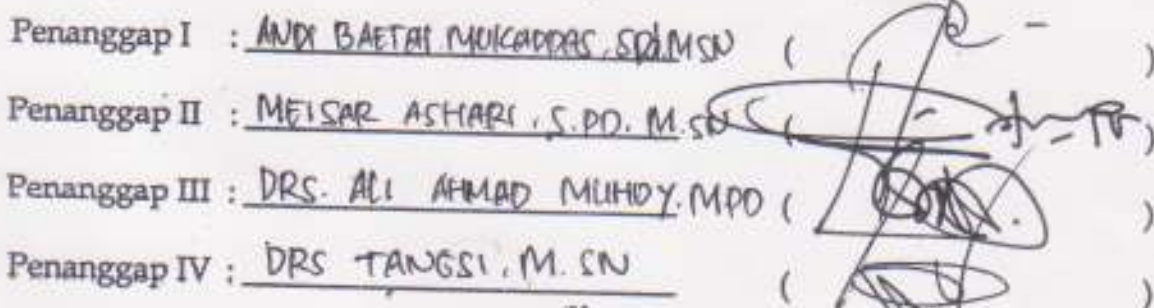 Penanggap I : ANDI BAETAL MUKADDAS, S.Pd.MSN ( )
Penanggap II : MEISAR ASHARI, S.PD. M.SN ( )
Penanggap III : DRS. ALI AHMAD MUHDY. MPD ( )
Penanggap IV : DRS TANGSI, M. SN ( )